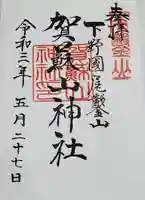 奉拝
下野國 尾鑿山
賀蘇山神社
令和三年 五月二十七日